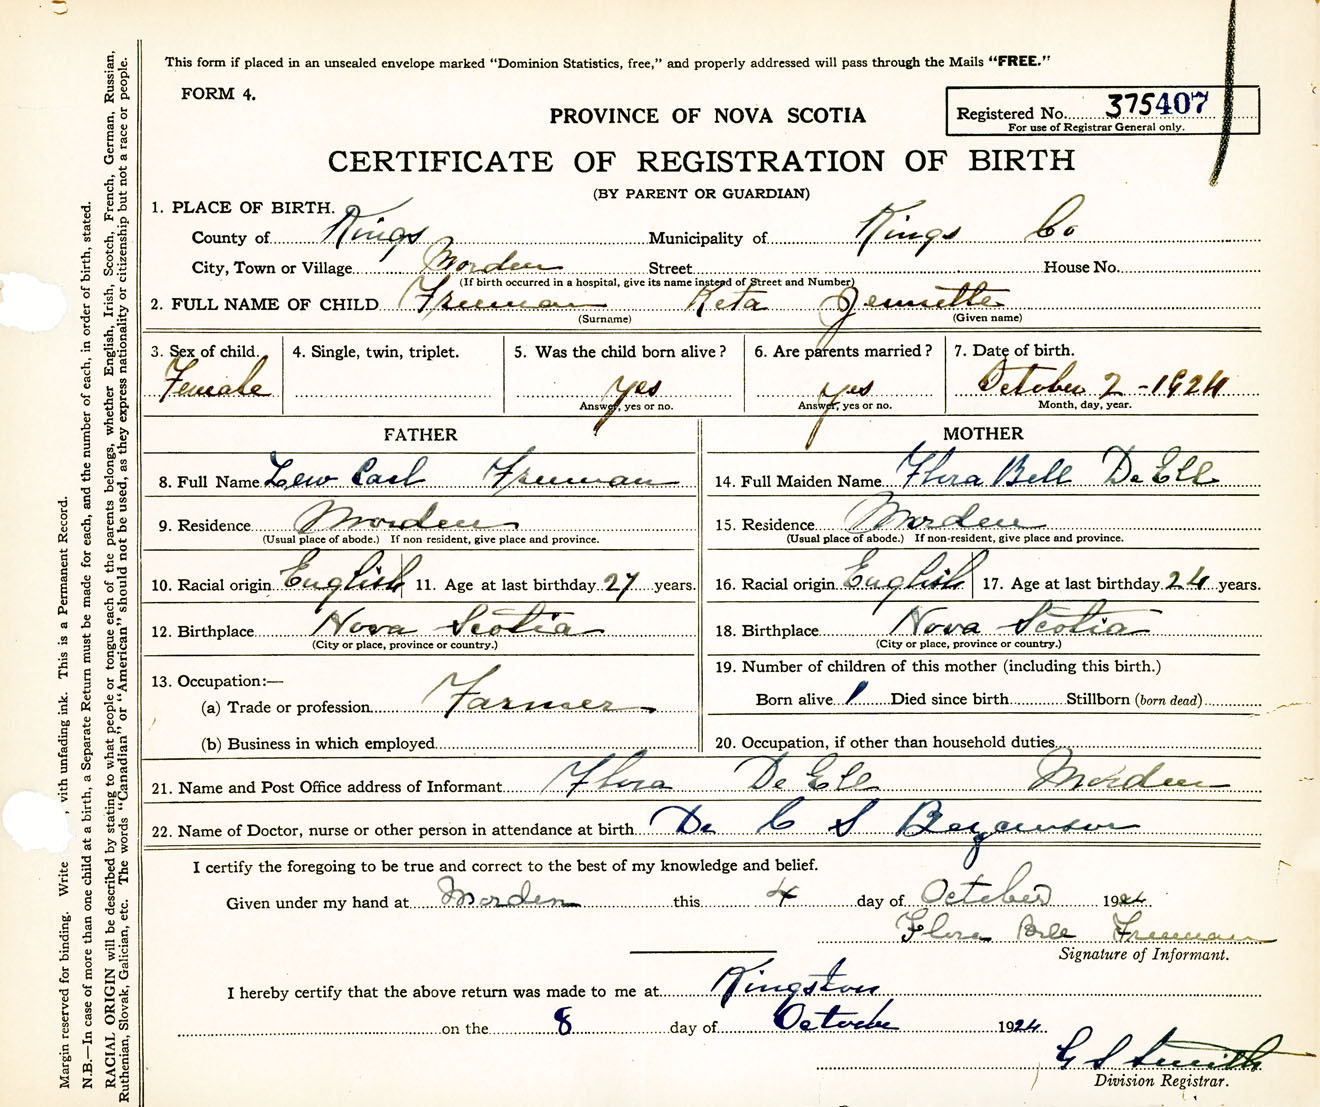 This form if placed in an unsealed envelope marked "Dominion Statistics, free," and properly addressed will pass through the Mails "FREE."
FORM 4.
PROVINCE OF NOVA SCOTIA
Registered No. 375407
For use of Registrar General only.
CERTIFICATE OF REGISTRATION OF BIRTH
(BY PARENT OR GUARDIAN)
1. PLACE OF BIRTH.
County of Kings Municipality of Kings Co
City, Town or Village Morden Street House No.
(If birth occurred in a hospital, give its name instead of Street and Number)
2. FULL NAME OF CHILD Freeman Reta Jennette
(Surname) (Given name)
3. Sex of child. 4. Single, twin, triplet. 5. Was the child born alive? 6. Are parents married? 7. Date of birth.
Female yes yes October 2 - 1924
Answer, yes or no. Answer, yes or no. Month, day, year.
FATHER MOTHER
8. Full Name Lew Carl Freeman 14. Full Maiden Name Flora Bell De Ell
9. Residence Morden 15. Residence Morden
(Usual place of abode.) If non resident, give place and province. (Usual place of abode.) If non-resident, give place and province.
10. Racial origin English 11. Age at last birthday 27 years. 16. Racial origin English 17. Age at last birthday 24 years.
12. Birthplace Nova Scotia 18. Birthplace Nova Scotia
(City or place, province or country.) (City or place, province or country.)
13. Occupation:— 19. Number of children of this mother (including this birth.)
(a) Trade or profession Farmer Born alive 1 Died since birth Stillborn (born dead)
(b) Business in which employed 20. Occupation, if other than household duties
21. Name and Post Office address of Informant Flora De Ell Morden
22. Name of Doctor, nurse or other person in attendance at birth Dr C S Bezanson
I certify the foregoing to be true and correct to the best of my knowledge and belief.
Given under my hand at Morden this 4 day of October 1924
Flora Bell Freeman
Signature of Informant.
I hereby certify that the above return was made to me at Kingston
on the 8 day of October 1924
G S Smith
Division Registrar.
Margin reserved for binding. Write with unfading ink. This is a Permanent Record.
N.B.—In case of more than one child at a birth, a Separate Return must be made for each, and the number of each, in order of birth, stated.
RACIAL ORIGIN will be described by stating to what people or tongue each of the parents belongs, whether English, Irish, Scotch, French, German, Russian,
Ruthenian, Slovak, Galician, etc. The words "Canadian" or "American" should not be used, as they express nationality or citizenship but not a race or people.